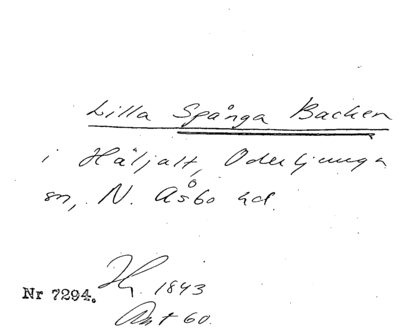 Lilla Spånga Backen
i Häljalt, Oderljunga
sn, N. Åsbo hd.
Hg. 1843
Nr 7294.
Ant 60.